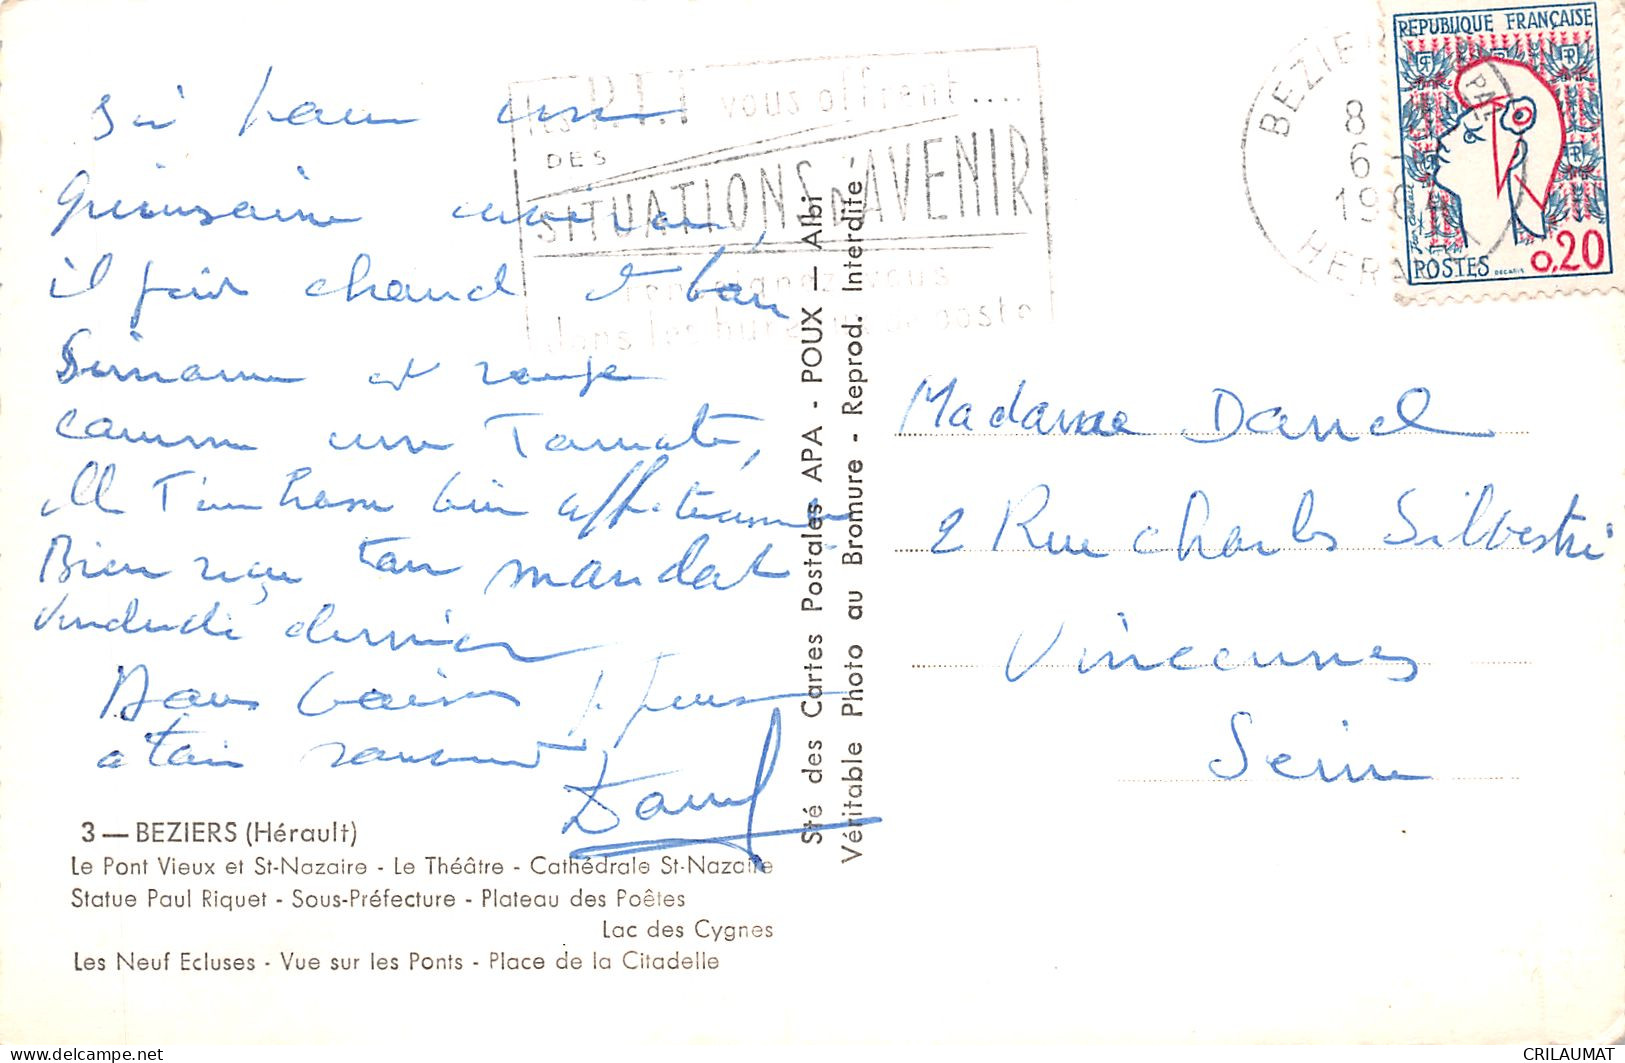 ici pour une
quinzaine environ,
il fait chaud et bon
Simone est rouge
comme une Tomate,
Elle t'embrasse bien affectueusement
Bien reçu ton mandat
vendredi dernier
Bons baisers je pense
a ton
Danel
3 — BEZIERS (Hérault)
Le Pont Vieux et St-Nazaire - Le Théâtre - Cathédrale St-Nazaire
Statue Paul Riquet - Sous-Préfecture - Plateau des Poêtes
Lac des Cygnes
Les Neuf Ecluses - Vue sur les Ponts - Place de la Citadelle
Sté des Cartes Postales APA - POUX — Albi
Véritable Photo au Bromure - Reprod. Interdite
les P.T.T vous offrent....
DES
SITUATIONS d'AVENIR
renseignez-vous
dans les bureaux de poste
BEZIERS
8
6
19
HERAULT
REPUBLIQUE FRANÇAISE
POSTES 0,20
DECARIS
Madame Danel
2 Rue Charles Silvestri
Vincennes
Seine
CRILAUMAT